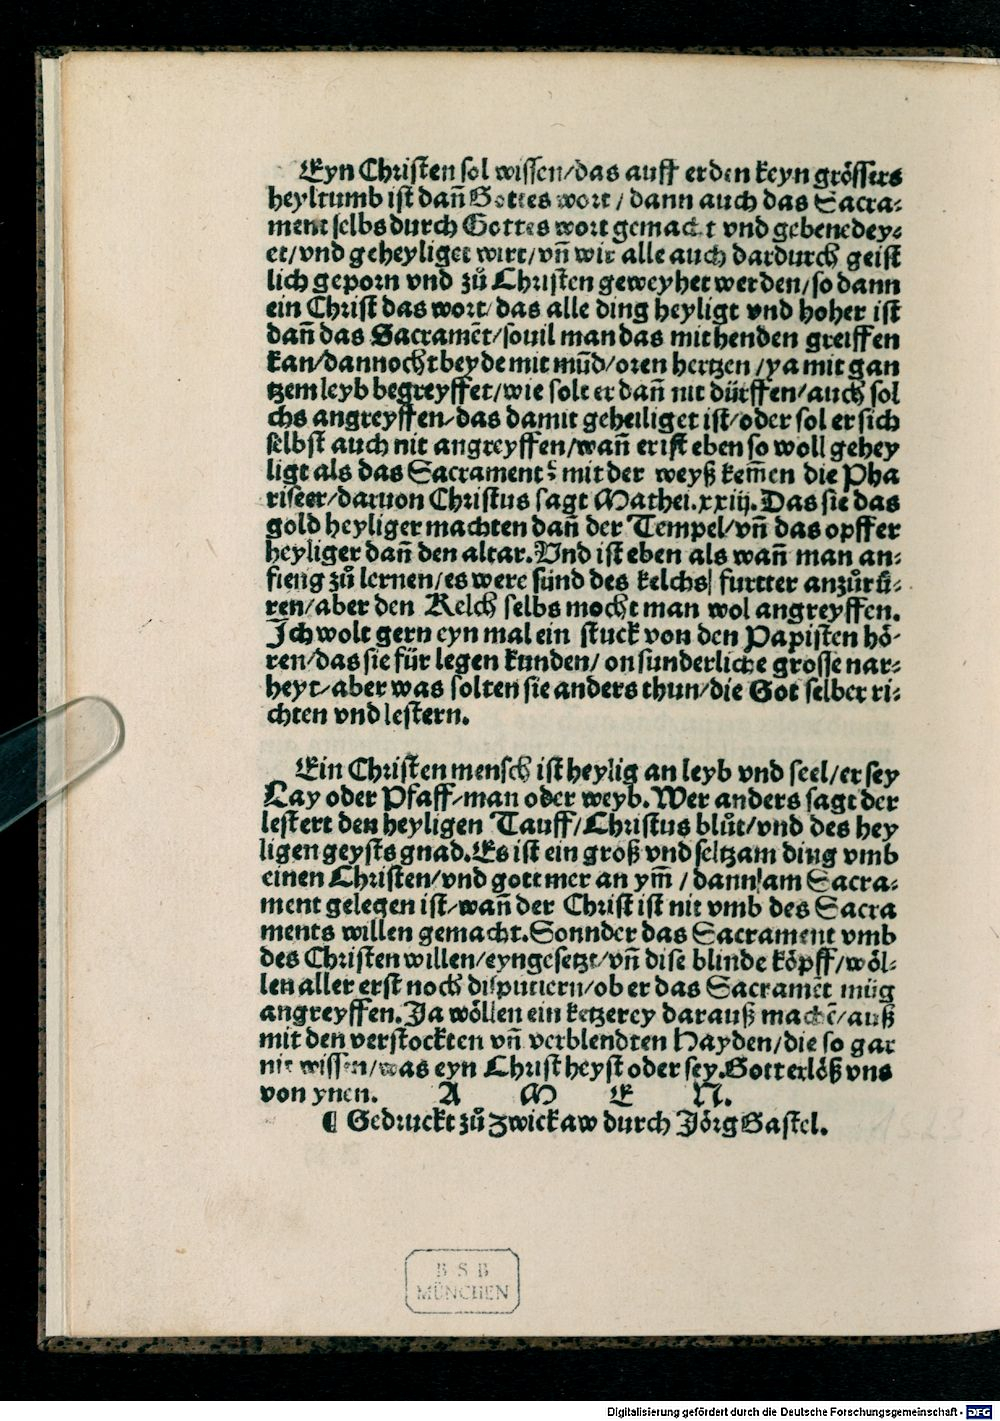 Eyn Christen sol wissen/das auff erden keyn grössers
heyltumb ist dañ Gottes wort / dann auch das Sacra⸗
ment selbs durch Gottes wort gemacht vnd gebenedey⸗
et/vnd geheyliget wirt/vñ wir alle auch dardurch geist
lich geporn vnd zů Christen geweyhet werden/so dann
ein Christ das wort/das alle ding heyligt vnd hoher ist
dañ das Sacramẽt/souil man das mit henden greiffen
kan/dannocht beyde mit mũd/oren hertzen/ya mit gan
tzem leyb begreyffet/wie solt er dañ nit dürffen/auch sol
chs angreyffen/das damit geheiliget ist/oder sol er sich
selbst auch nit angreyffen/wañ er ist eben so woll gehey
ligt als das Sacrament? mit der weyß kem̃en die Pha
riseer/daruon Christus sagt Mathei.xxiij.Das sie das
gold heyliger machten dañ der Tempel/vñ das opffer
heyliger dañ den altar.Vnd ist eben als wañ man an⸗
fieng zů lernen/es were sünd des kelchs furtter anzůrů⸗
ren/aber den Kelch selbs mocht man wol angreyffen.
Ich wolt gern eyn mal ein stuck von den Papisten hö⸗
ren/das sie für legen kunden/on sunderliche grosse nar⸗
heyt/aber was solten sie anders thun/die Got selber ri⸗
chten vnd lestern.
Ein Christen mensch ist heylig an leyb vnd seel/er sey
Lay oder Pfaff/man oder weyb.Wer anders sagt der
lestert den heyligen Tauff/Christus blůt/vnd des hey
ligen geysts gnad.Es ist ein groß vnd seltzam ding vmb
einen Christen/vnd gott mer an ym̃ / dann am Sacra⸗
ment gelegen ist/wañ der Christ ist nit vmb des Sacra
ments willen gemacht.Sonnder das Sacrament vmb
des Christen willen/eyngesetzt/vñ dise blinde köpff/wöl⸗
len aller erst noch disputiern/ob er das Sacramẽt müg
angreyffen.Ja wöllen ein ketzerey darauß machẽ/auß
mit den verstockten vñ verblendten Hayden/die so gar
nit wissen/was eyn Christ heyst oder sey.Gott erlöß vns
von ynen. A M E N.
¶ Gedruckt zů Zwickaw durch Jörg Gastel.
B S B
MÜNCHEN
Digitalisierung gefördert durch die Deutsche Forschungsgemeinschaft - DFG